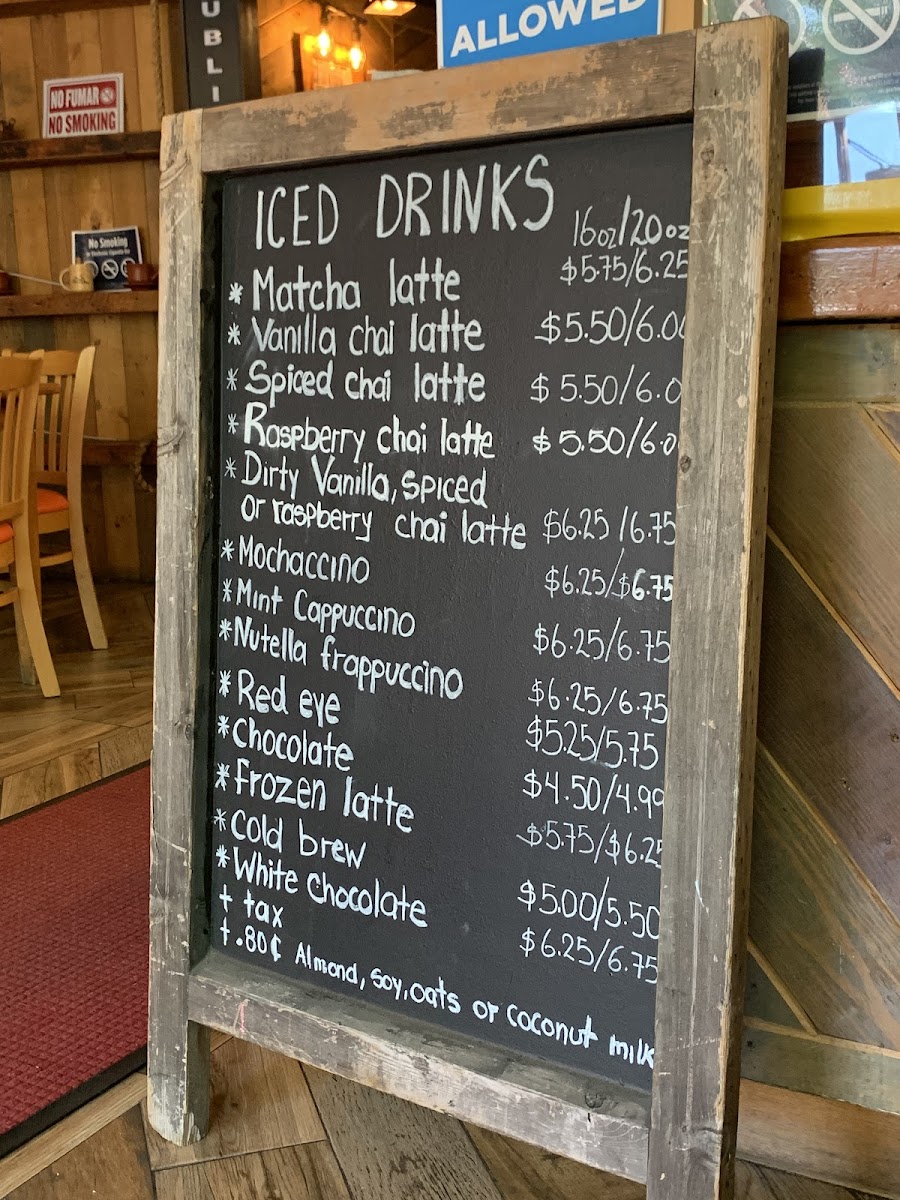 UBLI
ALLOWED
NO FUMAR
NO SMOKING
No Smoking
ICED DRINKS
16oz/20oz
* Matcha latte $5.75/6.25
* Vanilla chai latte $5.50/6.00
* Spiced chai latte $5.50/6.0
* Raspberry chai latte $5.50/6.0
* Dirty Vanilla, spiced
or raspberry chai latte $6.25/6.75
* Mochaccino $6.25/$6.75
* Mint Cappuccino $6.25/6.75
* Nutella frappuccino $6.25/6.75
* Red eye $5.25/5.75
* Chocolate $4.50/4.99
* Frozen latte $5.75/$6.25
* Cold brew $5.00/5.50
* White Chocolate $6.25/6.75
+ tax
+.80¢ Almond, soy, oats or coconut milk